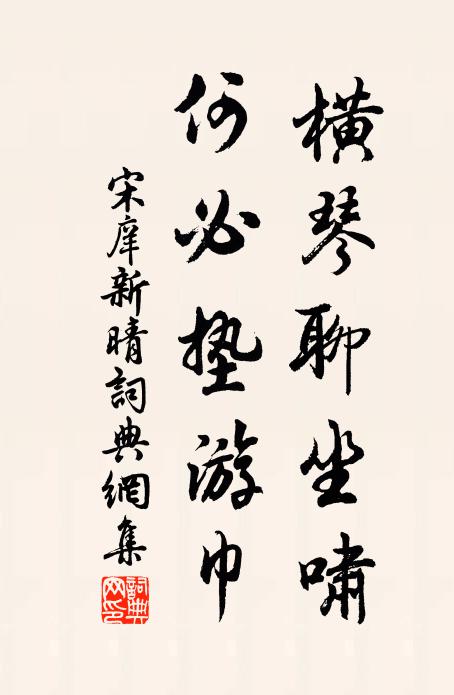 橫琴聊坐嘯
何必墊游巾
宋庠新晴詞典網集
詞典網印